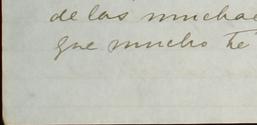 de las muchac
que mucho tie